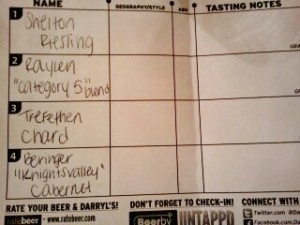 NAME GEOGRAPHY/STYLE ABV TASTING NOTES
1 Shelton
Riesling
2 Raylen
"category 5" blend
3 Trefethen
Chard
4 Beringer
"Knights valley"
Cabernet
RATE YOUR BEER & DARRYL'S! DON'T FORGET TO CHECK-IN! CONNECT WITH
ratebeer - www.ratebeer.com Beerby UNTAPPD Twitter.com
Facebook.com